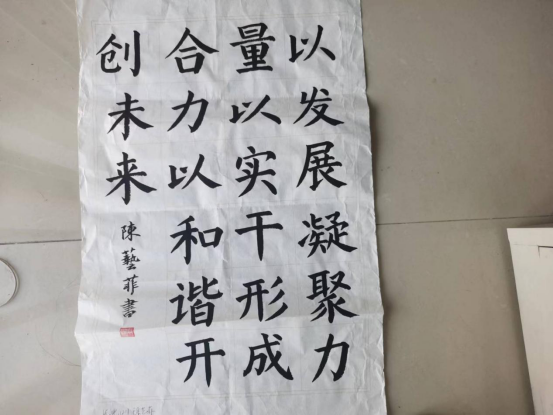 以发展凝聚力
量以实干形成
合力以和谐开
创未来
陳藝菲書